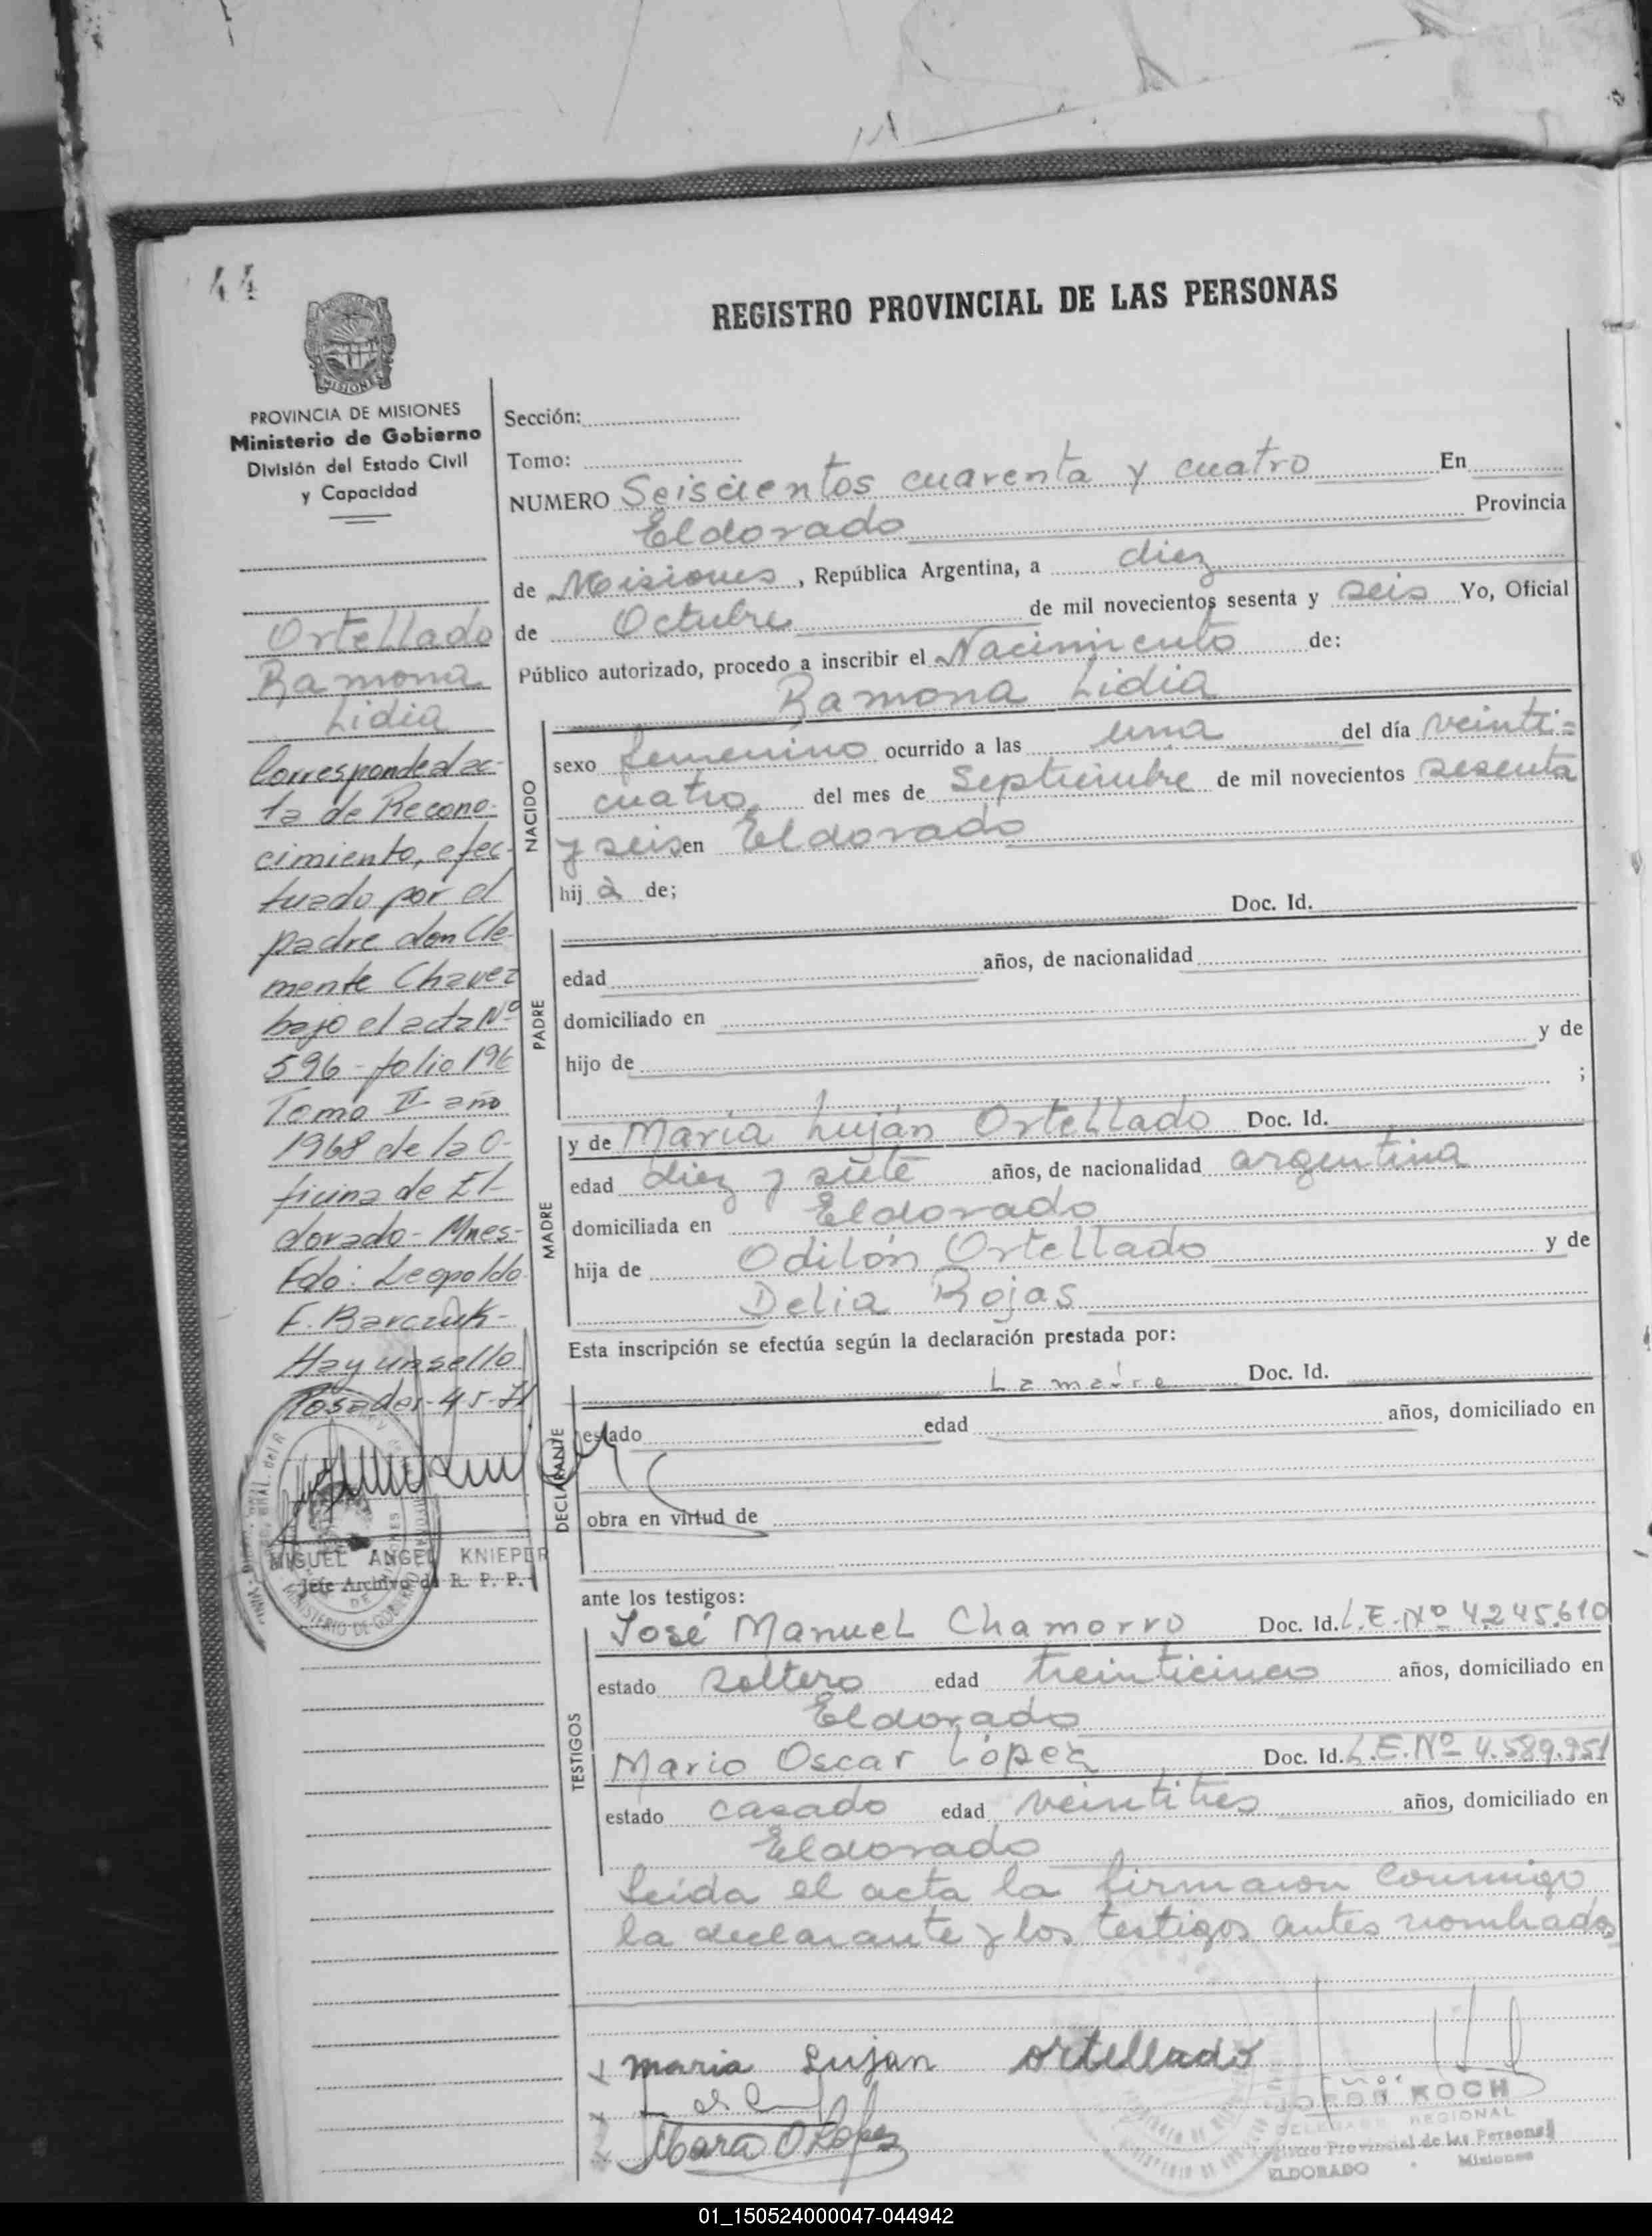 44
REGISTRO PROVINCIAL DE LAS PERSONAS
MISIONES
PROVINCIA DE MISIONES
Ministerio de Gobierno
División del Estado Civil
y Capacidad
Ortellado
Ramona
Lidia
Corresponde al ac-
ta de Recono-
cimiento, efec-
tuado por el
padre don Cle-
mente Chavez
bajo el acta Nº
596 - folio 196
Tomo II año
1968 de la O-
ficina de El-
dorado - Mnes-
Fdo: Leopoldo
F. Barczuk-
Hay un sello
Posadas - 4-5-71
MIGUEL ANGEL KNIEPER
Jefe Archivo de R. P. P.
Sección:
Tomo:
NUMERO Seiscientos cuarenta y cuatro En
Eldorado Provincia
de Misiones, República Argentina, a diez
de Octubre de mil novecientos sesenta y seis Yo, Oficial
Público autorizado, procedo a inscribir el Nacimiento de:
Ramona Lidia
NACIDO
sexo femenino ocurrido a las una del día veinti=
cuatro del mes de Septiembre de mil novecientos sesenta
y seis en Eldorado
hij a de;
PADRE
Doc. Id.
edad años, de nacionalidad
domiciliado en
hijo de y de
;
MADRE
y de María Luján Ortellado Doc. Id.
edad diez y siete años, de nacionalidad argentina
domiciliada en Eldorado
hija de Odilón Ortellado y de
Delia Rojas
Esta inscripción se efectúa según la declaración prestada por:
DECLARANTE
La madre Doc. Id.
estado edad años, domiciliado en
obra en virtud de
ante los testigos:
TESTIGOS
José Manuel Chamorro Doc. Id. L.E. Nº 4.245.610
estado soltero edad treinticinco años, domiciliado en
Eldorado
Mario Oscar López Doc. Id. L.E. Nº 4.589.951
estado casado edad veintitres años, domiciliado en
Eldorado
Leída el acta la firmaron conmigo
la declarante y los testigos antes nombrados
maria Lujan ortellado
KOCH
DELEGADO REGIONAL
Registro Provincial de las Personas
ELDORADO Misiones
01_150524000047-044942